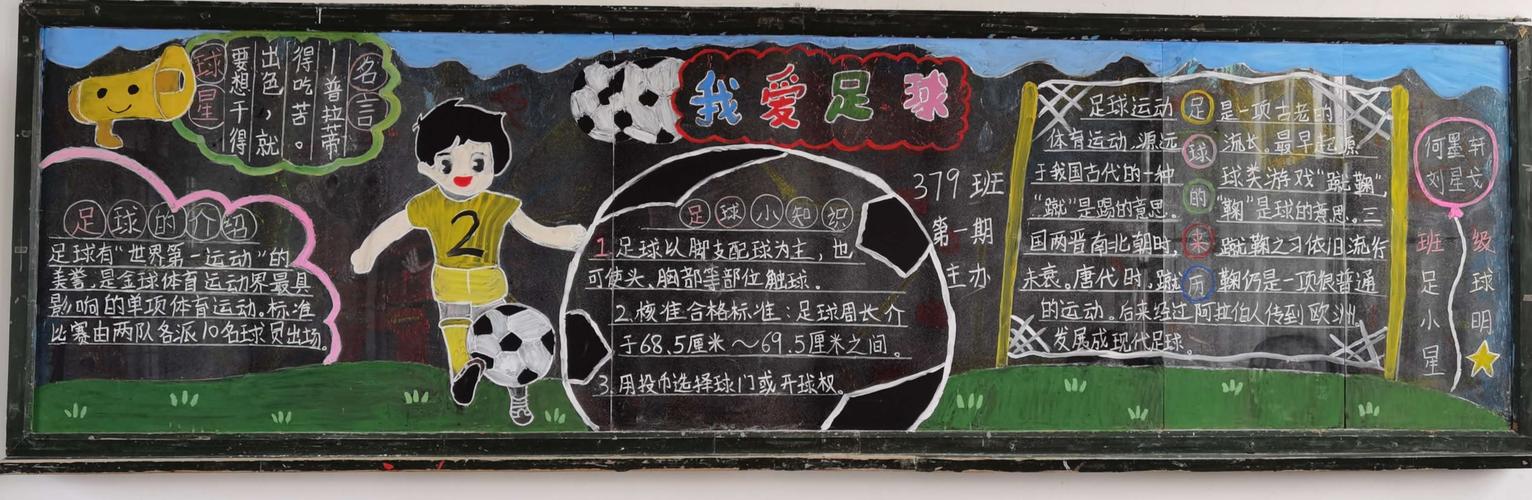 我爱足球
球星
名言
要想干得
出色，就
得吃苦。
—普拉蒂
足球的介绍
足球有“世界第一运动”的
美誉，是金球体育运动界最具
影响的单项体育运动。标准
比赛由两队各派10名球员出场。
2
足球小知识
1.足球以脚支配球为主，也
可使头、胸部等部位触球。
2.核准合格标准：足球周长介
于68.5厘米～69.5厘米之间。
3.用投币选择球门或开球权。
379班
第一期
主办
足球的来历
足球运动是一项古老的
体育运动，源远流长。最早起源
于我国古代的一种球类游戏“蹴鞠”，
“蹴”是踢的意思。“鞠”是球的意思。三
国两晋南北朝时，蹴鞠之习依旧流行
未衰。唐代时，蹴鞠仍是一项很普通
的运动。后来经过阿拉伯人传到欧洲，
发展成现代足球。
何墨轩
刘星戈
班级
足球
小明
星